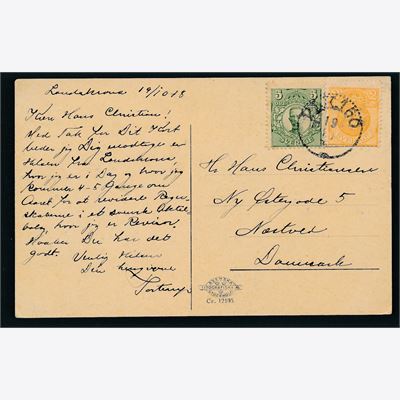 Landskrona 19/10 18
Kære Hans Christian!
Med Tak for Dit Kort
beder jeg Dig modtage en
Hilsen fra Landskrona,
hvor jeg er i Dag og hvor jeg
kommer 4-5 Gange om
Aaret for at revidere Regn-
skaberne i et svensk Aktie-
bolag, hvor jeg er Revisor.
Haaber Du har det
godt. Venlig Hilsen
Din hengivne
5
5
19
Hr Hans Christiansen
Ny Østergade 5
Næstved
Danmark
Cr. 12195